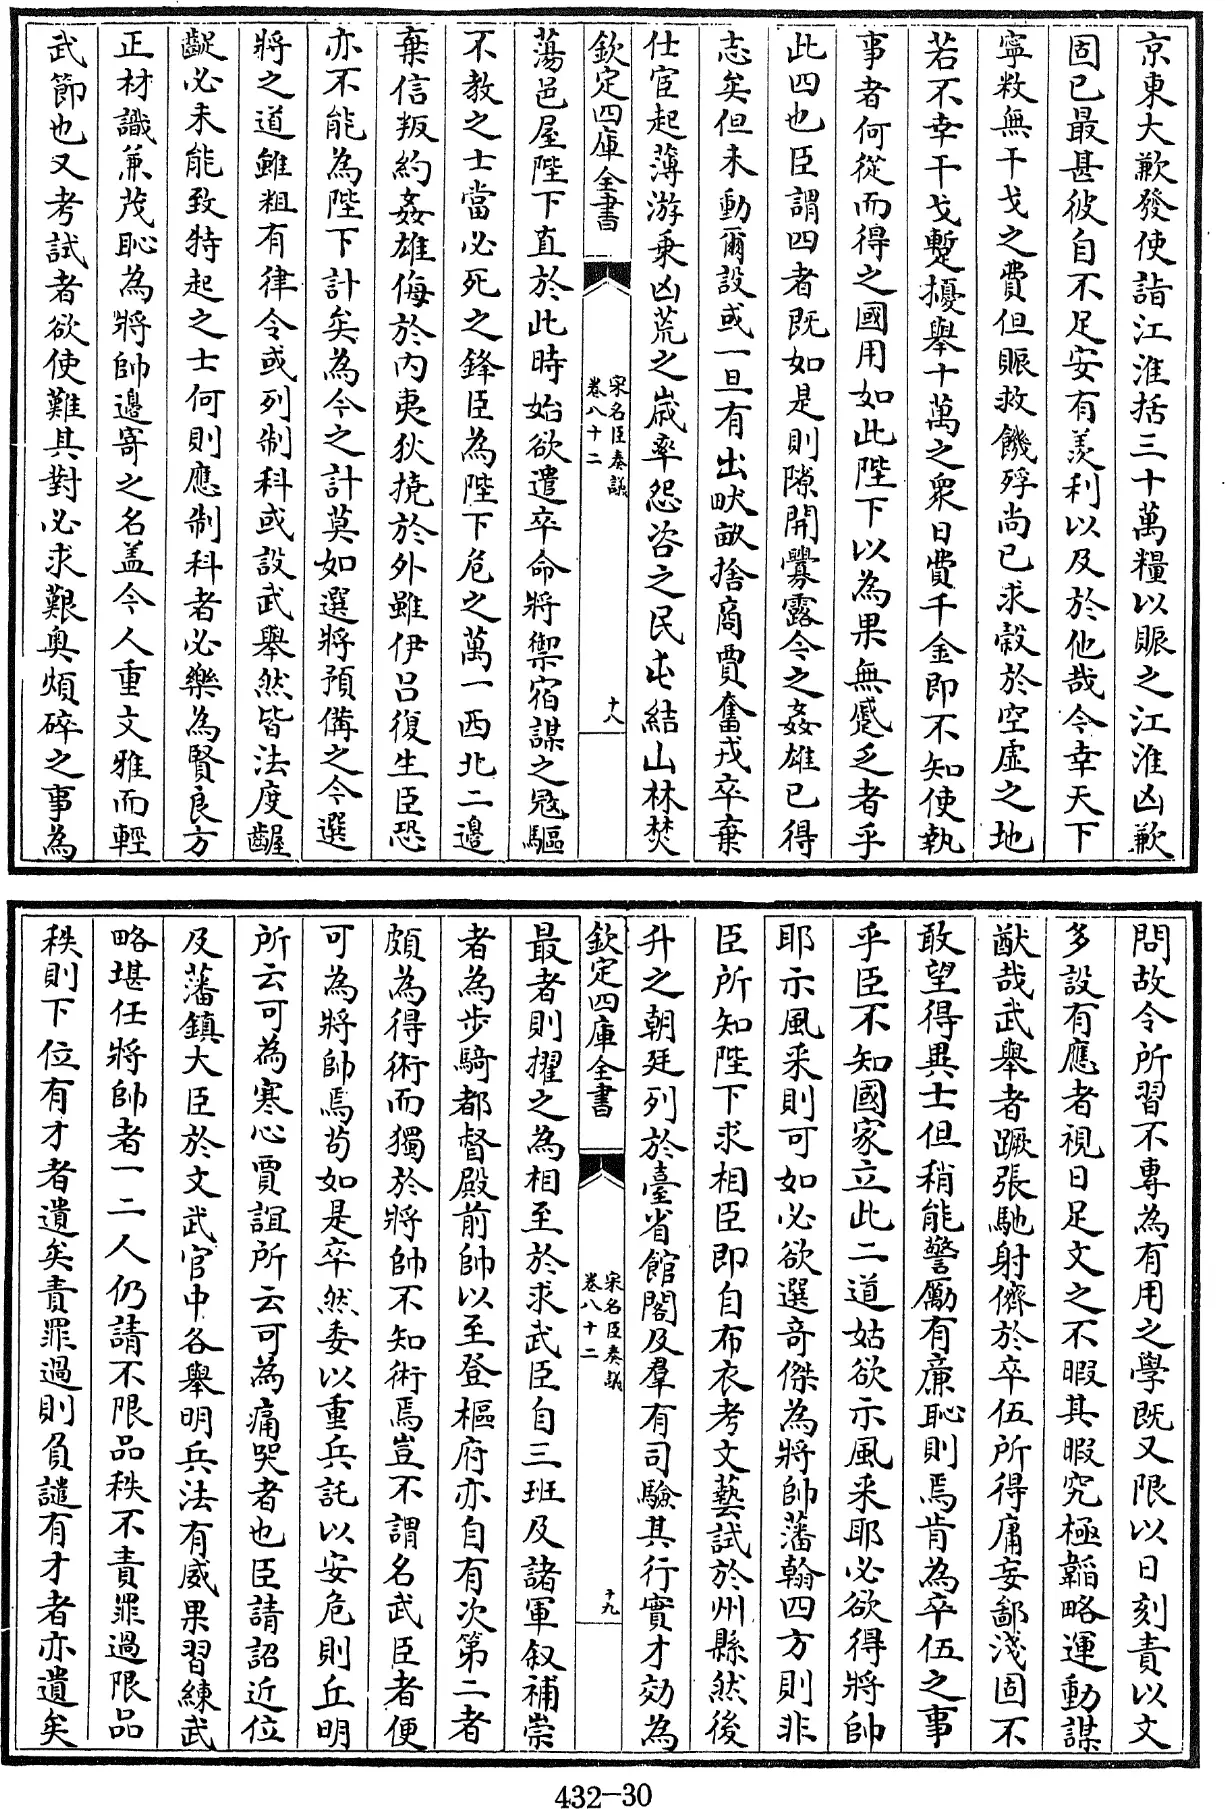 京東大歉發使詣江淮括三十萬糧以賑之江淮凶歉
固已最甚彼自不足安有羨利以及於他哉令幸天下
寧敉無干戈之費但賑救饑殍尚已求穀於空虛之地
若不幸干戈蹔擾舉十萬之衆日費千金即不知使執
事者何從而得之國用如此陛下以為果無慼乏者乎
此四也臣謂四者既如是則隙開釁露令之姦雄已得
志矣但未動爾設或一旦有出畎畝捨商賈奮戎卒棄
仕宦起薄游乗凶荒之歳率怨咨之民屯結山林焚
欽定四庫全書
宋名臣奏議
卷八十二
十八
蕩邑屋陛下直於此時始欲遣卒命將禦宿謀之冦驅
不教之士當必死之鋒臣為陛下危之萬一西北二邊
棄信叛約姦雄侮於内夷狄撓於外雖伊吕復生臣恐
亦不能為陛下計矣為今之計莫如選將預備之今選
將之道雖粗有律令或列制科或設武舉然皆法度齷
齪必未能致特起之士何則應制科者必樂為賢良方
正材識兼茂恥為將帥邊寄之名盖今人重文雅而輕
武節也又考試者欲使難其對必求艱奥煩碎之事為
問故令所習不專為有用之學既又限以日刻責以文
多設有應者視日足文之不暇其暇究極韜略運動謀
猷哉武舉者蹶張馳射儕於卒伍所得庸妄鄙淺固不
敢望得異士但稍能警勵有亷恥則焉肯為卒伍之事
乎臣不知國家立此二道姑欲示風采耶必欲得將帥
耶示風采則可如必欲選竒傑為將帥藩翰四方則非
臣所知陛下求相臣即自布衣考文藝試於州縣然後
升之朝廷列於臺省館閣及羣有司驗其行實才効為
欽定四庫全書
宋名臣奏議
卷八十二
十九
最者則擢之為相至於求武臣自三班及諸軍叙補崇
者為步騎都督殿前帥以至登樞府亦自有次第二者
頗為得術而獨於將帥不知術焉豈不謂名武臣者便
可為將帥焉茍如是卒然委以重兵託以安危則丘明
所云可為寒心賈誼所云可為痛哭者也臣請詔近位
及藩鎮大臣於文武官中各舉明兵法有威果習練武
略堪任將帥者一二人仍請不限品秩不責罪過限品
秩則下位有才者遺矣責罪過則負譴有才者亦遺矣
432-30